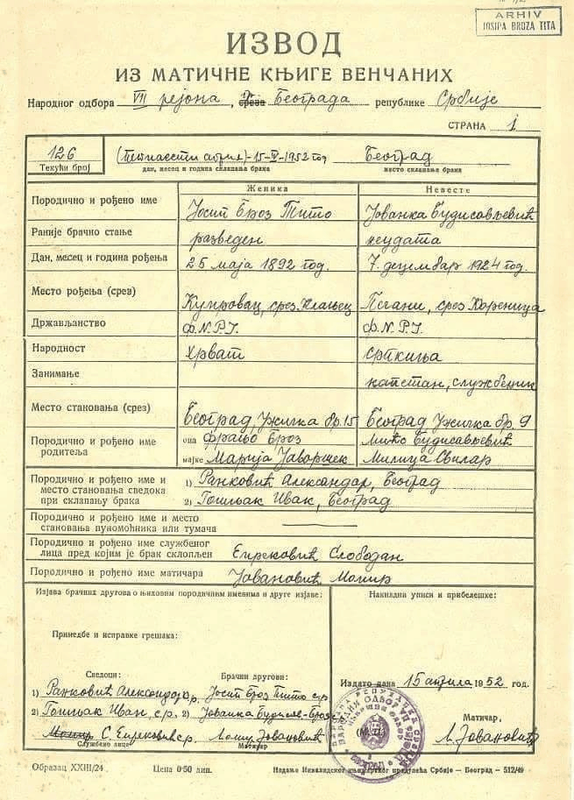 ARHIV
JOSIPA BROZA TITA
ИЗВОД
ИЗ МАТИЧНЕ КЊИГЕ ВЕНЧАНИХ
Народног одбора VII рејона, среза Београда републике Србије
СТРАНА 1
126 (петнаести април) - 15-IV-1952 год Београд
Текући број дан, месец и година склапања брака место склапања брака
Женика Невесте
Породично и рођено име Јосип Броз Тито Јованка Будисављевић
Раније брачно стање разведен неудата
Дан, месец и година рођења 25 маја 1892 год. 7 децембар 1924 год.
Место рођења (срез) Кумровец, срез Клањец Пећани, срез Кореница
Држављанство Ф.Н.Р.Ј. Ф.Н.Р.Ј.
Народност Хрват српкиња
Занимање капетан, службеник
Место становања (срез) Београд Ужичка бр. 15 Београд Ужичка бр. 9
Породично и рођено име оца Фрањо Броз Мићо Будисављевић
родитеља мајке Марија Јаворшек Милица Свилар
Породично и рођено име и 1) Ранковић Александар, Београд
место становања сведока
при склапању брака 2) Гошњак Иван, Београд
Породично и рођено име и место
становања пуномоћника или тумача
Породично и рођено име службеног
лица пред којим је брак склопљен Слободан
Породично и рођено име матичара Јовановић Момир
Изјава брачних другова о њиховом породичним именима и друге изјаве: Накнадни уписи и прибелешке:
Примедбе и исправке грешака:
Сведоци: Брачни другови:
1) Ранковић Александар с.р. 1) Јосип Броз Тито с.р. Издато дана 15 априла 1952 год.
2) Гошњак Иван, с.р. 2) Јованка Будисав-Броз
(М. П.) Матичар,
Момир С. с.р. Момир Јовановић с.р. Јовановић
Службено лице Матичар
Образац XXIII/24 Цена 0·50 дин. Србије — Београд - 512/49